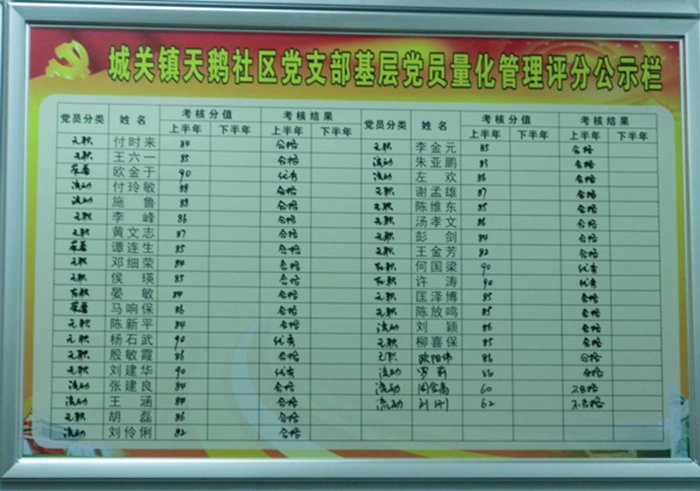 城关镇天鹅社区党支部基层党员量化管理评分公示栏
党员分类 姓名 考核分值 考核结果 党员分类 姓名 考核分值 考核结果
上半年 下半年 上半年 下半年 上半年 下半年 上半年 下半年
无职 付时来 84 合格 无职 李金元 85 合格
无职 王六一 85 合格 无职 朱亚鹏 83 合格
欧金于 90 优秀 流动 左欢 86 合格
流动 付玲敏 88 合格 无职 谢孟雄 87 合格
流动 施鲁 83 合格 无职 陈维东 85 合格
无职 李峰 86 合格 无职 汤孝文 86 合格
无职 黄文志 87 合格 无职 彭剑 84 合格
谭连生 85 合格 无职 王金芳 82 合格
无职 邓细荣 84 合格 何国梁 90 优秀
无职 侯瑛 85 合格 许涛 90 优秀
晏敏 84 合格 无职 匡泽博 85 合格
马响保 86 合格 无职 陈放鸣 85 合格
无职 陈新平 84 合格 流动 刘颖 86 合格
无职 杨石武 90 优秀 无职 柳喜保 85 合格
无职 殷敏霞 86 合格 无职 欧阳伟 86 合格
流动 刘建华 90 优秀 流动 罗莉 86 合格
流动 张建良 84 合格 流动 60 不合格
流动 王涵 84 合格 流动 刘 62 不合格
无职 胡磊 86 合格
流动 刘伶俐 82 合格